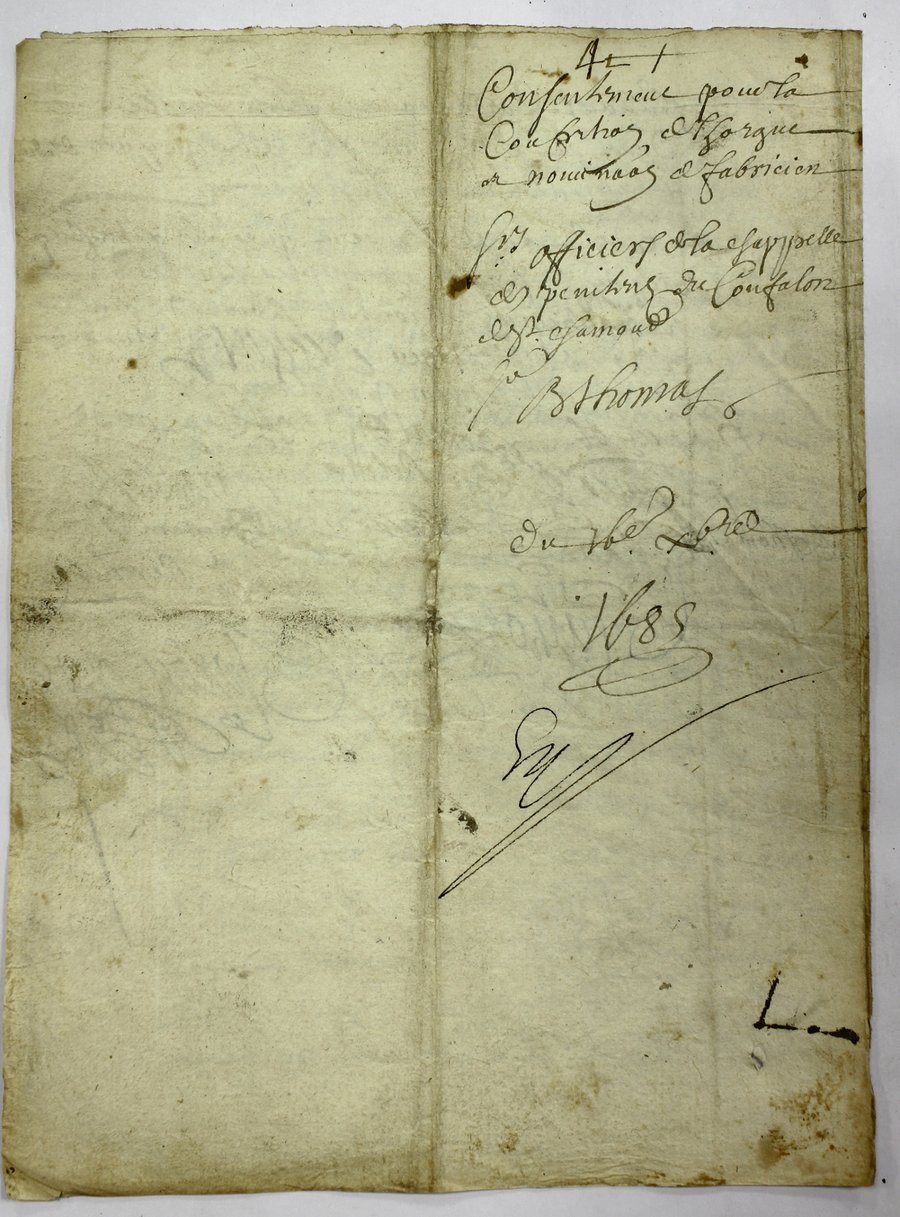 Consentement pour la
d'horgue
et nominaōn de fabricien
Srs officiers de la chappelle
des penitens du Confalon
de St. chamond
Sr B thomas
du 16e. xbre
1685
L.